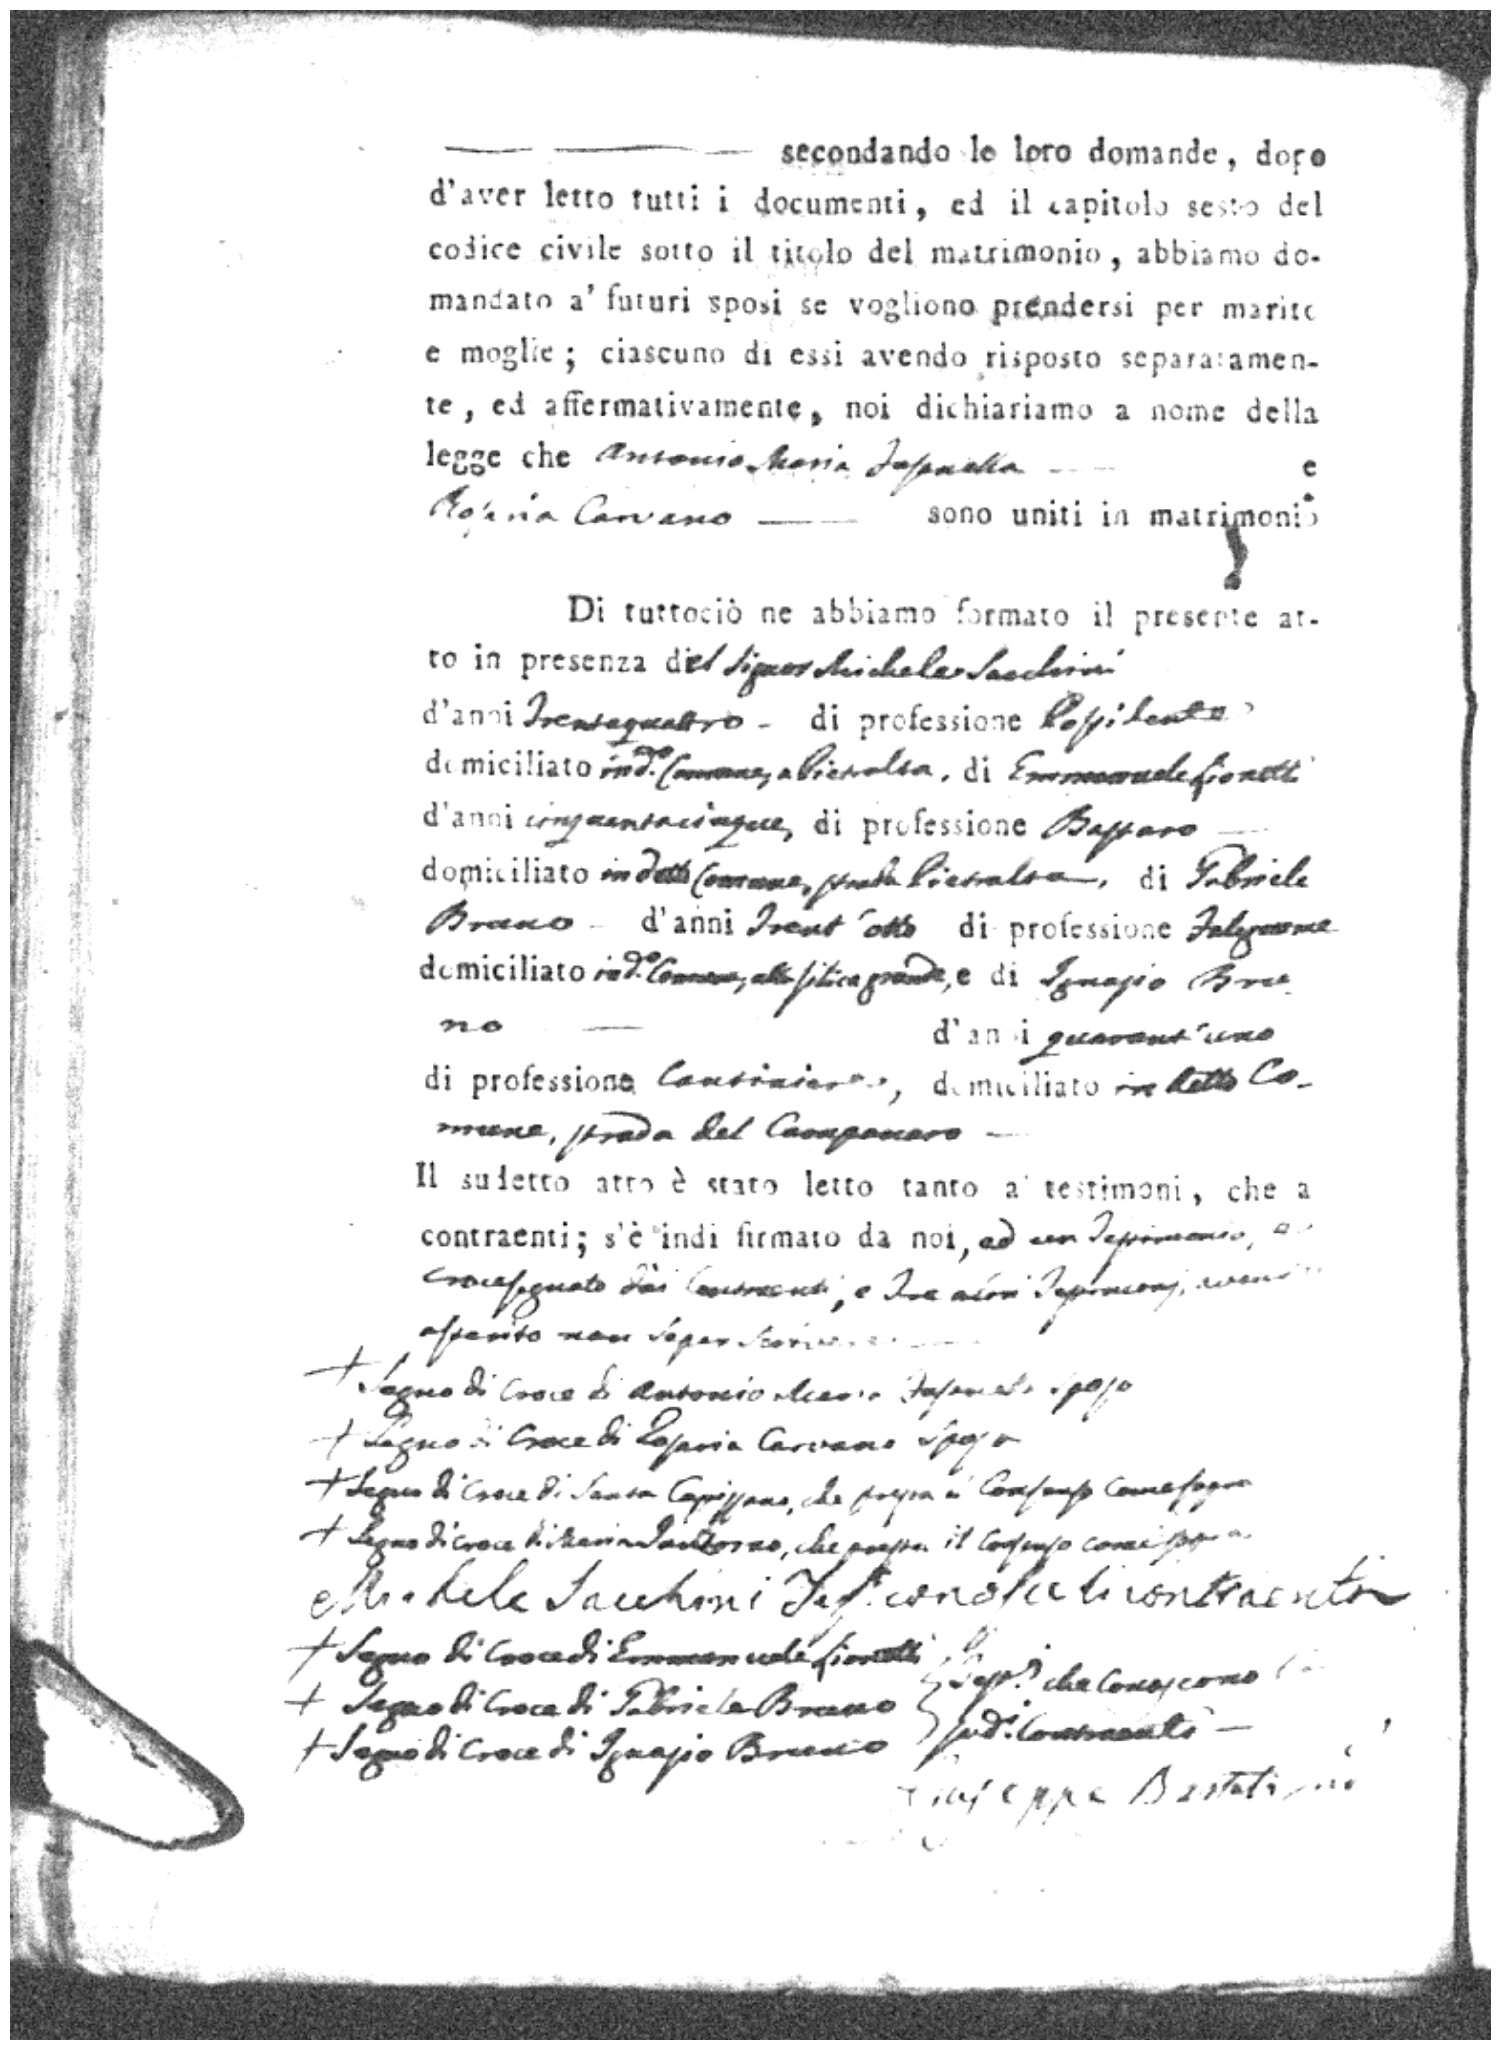 secondando le loro domande, dopo
d'aver letto tutti i documenti, ed il capitolo sesto del
codice civile sotto il titolo del matrimonio, abbiamo do-
mandato a' futuri sposi se vogliono prendersi per marito
e moglie; ciascuno di essi avendo risposto separatamen-
te, ed affermativamente, noi dichiariamo a nome della
legge che Antonio Maria e
Rosaria Carvano sono uniti in matrimonio
Di tuttociò ne abbiamo formato il presente at-
to in presenza del Signor Michele Sacchini
d'anni Trentaquattro di professione Possidente
domiciliato in d.o Comune, a Pietralta, di Emmanuele Lionetti
d'anni cinquantacinque, di professione Bastaro
domiciliato in detto Comune, strada Pietralta, di Gabriele
Bruno d'anni Trent'otto di professione Falegname
domiciliato in d.o Comune, alla grande, e di Ignazio Bru
no d'anni quarant'uno
di professione Cantiniere, domiciliato in detto Co-
mune, strada del Campanaro
Il sudetto atto è stato letto tanto a' testimoni, che a
contraenti; s'è indi firmato da noi, ed un Testimonio, e
crocesegnato dai Contraenti, e Tre altri Testimonj, avendo
asserito non saper scrivere
+ Segno di Croce di Antonio Maria Sposo
+ Segno di Croce di Rosaria Carvano Sposa
+ Segno di Croce di Santa che presta il Consenso come sopra
+ Segno di Croce di Maria che presta il Consenso come sopra
Michele Sacchini Test. conosce li contraenti
+ Segno di Croce di Emmanuele Lionetti
+ Segno di Croce di Gabriele Bruno
+ Segno di Croce di Ignazio Bruno
Test.i che conoscono
sud.i Contraenti
Giuseppe